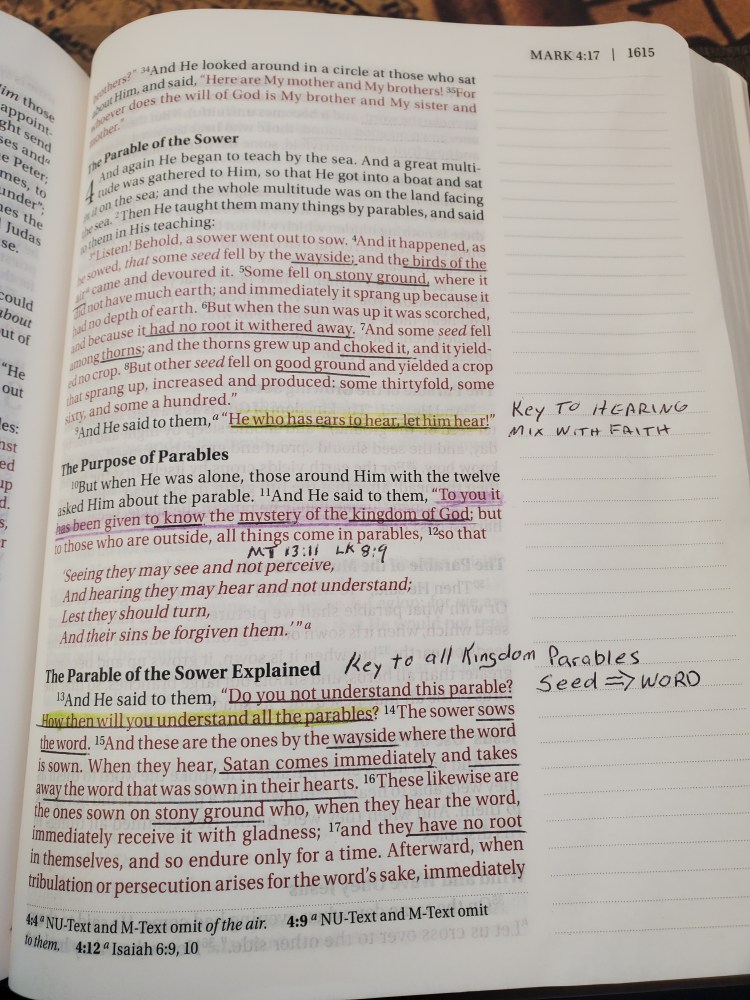 im those
appoint-
ght send
ses andᵃ
e Peter;
mes, to
under";
nes the
Judas
se.
could
about
ut of
"He
out
les:
nst
ed
up
d.
s,
r
MARK 4:17 | 1615
brothers?" ³⁴And He looked around in a circle at those who sat
about Him, and said, "Here are My mother and My brothers! ³⁵For
whoever does the will of God is My brother and My sister and
mother."
The Parable of the Sower
4 And again He began to teach by the sea. And a great multi-
tude was gathered to Him, so that He got into a boat and sat
in it on the sea; and the whole multitude was on the land facing
the sea. ²Then He taught them many things by parables, and said
to them in His teaching:
³"Listen! Behold, a sower went out to sow. ⁴And it happened, as
he sowed, that some seed fell by the wayside; and the birds of the
airᵃ came and devoured it. ⁵Some fell on stony ground, where it
did not have much earth; and immediately it sprang up because it
had no depth of earth. ⁶But when the sun was up it was scorched,
and because it had no root it withered away. ⁷And some seed fell
among thorns; and the thorns grew up and choked it, and it yield-
ed no crop. ⁸But other seed fell on good ground and yielded a crop
that sprang up, increased and produced: some thirtyfold, some
sixty, and some a hundred."
⁹And He said to them,ᵃ "He who has ears to hear, let him hear!"
Key to Hearing
Mix with Faith
The Purpose of Parables
¹⁰But when He was alone, those around Him with the twelve
asked Him about the parable. ¹¹And He said to them, "To you it
has been given to know the mystery of the kingdom of God; but
to those who are outside, all things come in parables, ¹²so that
MT 13:11 LK 8:9
'Seeing they may see and not perceive,
And hearing they may hear and not understand;
Lest they should turn,
And their sins be forgiven them.'"ᵃ
The Parable of the Sower Explained
Key to all Kingdom Parables
Seed ⇒ WORD
¹³And He said to them, "Do you not understand this parable?
How then will you understand all the parables? ¹⁴The sower sows
the word. ¹⁵And these are the ones by the wayside where the word
is sown. When they hear, Satan comes immediately and takes
away the word that was sown in their hearts. ¹⁶These likewise are
the ones sown on stony ground who, when they hear the word,
immediately receive it with gladness; ¹⁷and they have no root
in themselves, and so endure only for a time. Afterward, when
tribulation or persecution arises for the word's sake, immediately
4:4 ᵃ NU-Text and M-Text omit of the air. 4:9 ᵃ NU-Text and M-Text omit
to them. 4:12 ᵃ Isaiah 6:9, 10